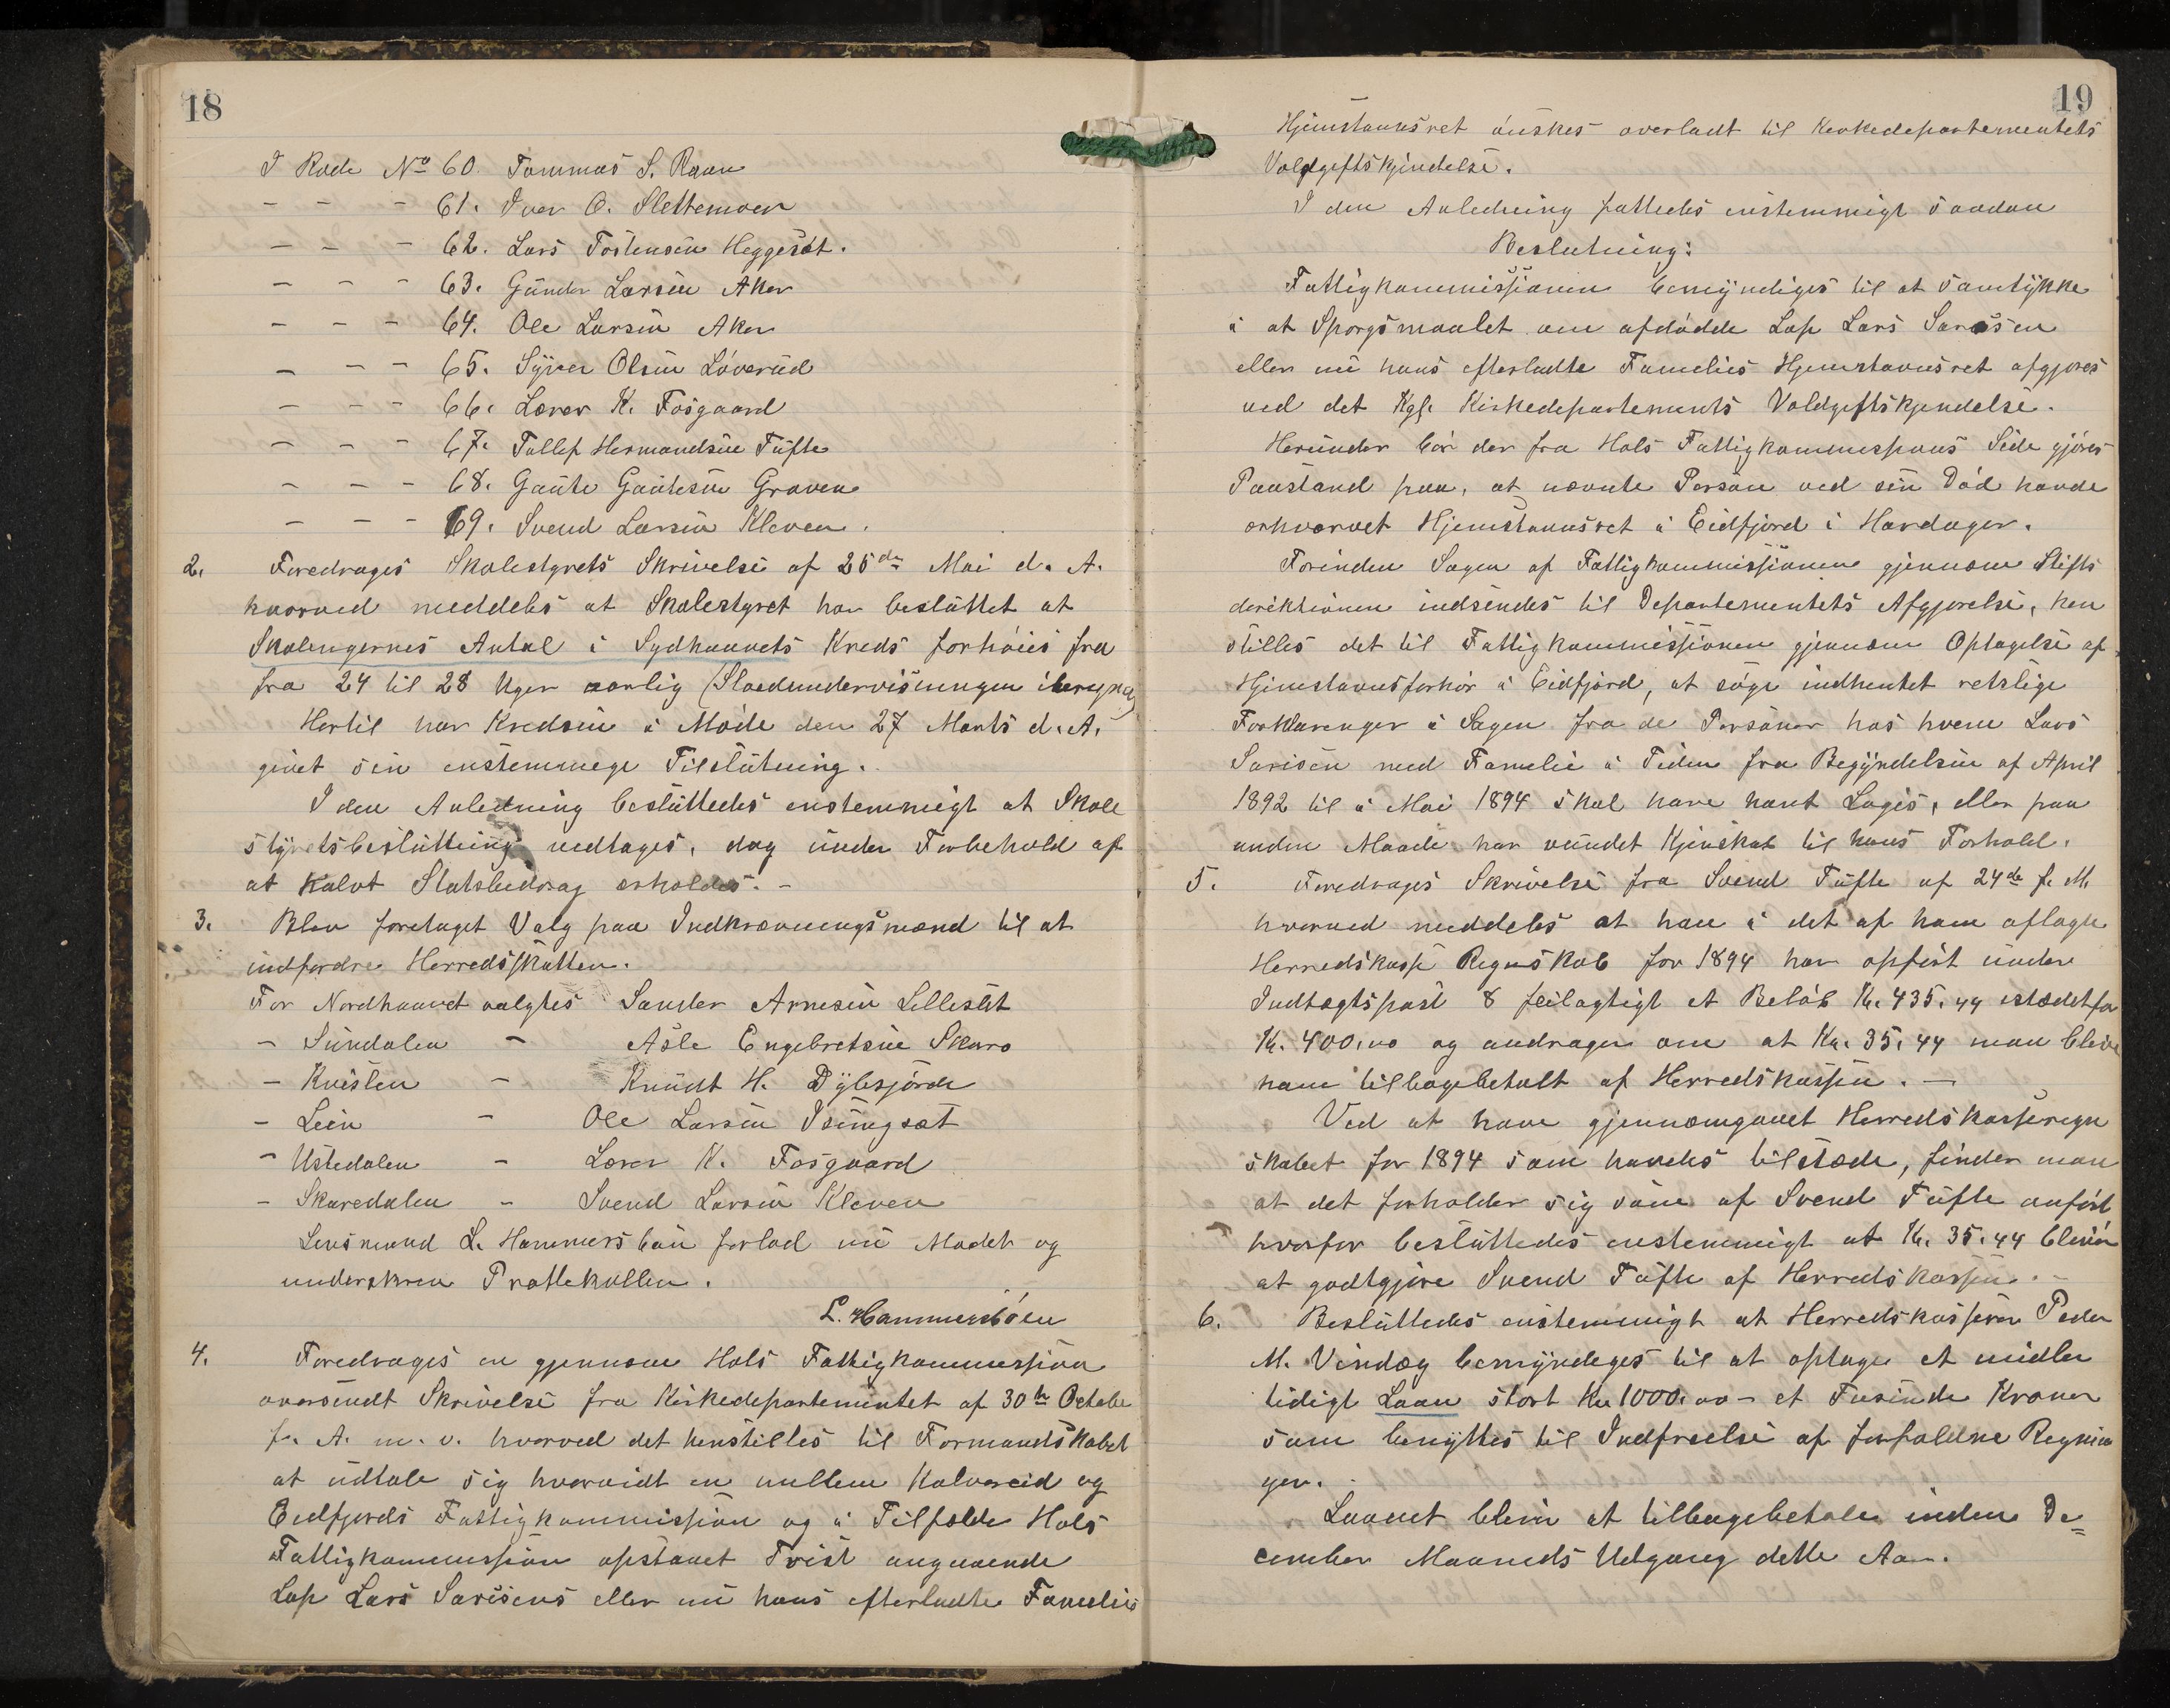 18
I Rode No 60. Tommas S. Raan
- - - 61. Iver O. Slettemoen
- - - 62. Lars Tostensen Heggesæt.
- - - 63. Gunder Larsen Aker
- - - 64. Ole Larsen Aker
- - - 65. Syver Olsen Løverud
- - - 66. Lærer K. Fosgaard
- - - 67. Tollef Hermandsen Tufte
- - - 68. Gaute Gautesen Graven
- - - 69. Svend Larsen Kleven.
2. Foredrages Skolestyrets Skrivelse af 25de Mai d. A.
hvorved meddeles at Skolestyret har besluttet at
Skoleugernes Antal i Sydhaavets Kreds forhøies fra
fra 24 til 28 Uger aarlig (Sløedundervisningen iberegnet)
Hertil har Kredsen i Møde den 27 Marts d. A.
givet sin enstemmege Tilslutning.
I den Anledning besluttedes enstemmigt at Skole
styretsbeslutning vedtages, dog under Forbehold af
at Halvt Statsbedrag erholdes. -
3. Blev foretaget Valg paa Indkrævningsmænd til at
indfordre Herredsskatten.
For Nordhaavet valgtes Sander Arnesen Lilleslet
- Sundalen - Asle Engebretsen Skaro
- Kvislen - Knudt H. Dyblesjorde
- Lein - Ole Larsen Isungsæt
- Ustedalen - Lærer K. Fosgaard
- Skurdalen - Svend Larsen Kleven
Lensmand L. Hammersbøen forlod nu Mødet og
underskrev Protokollen.
L. Hammersbøen
4. Foredrages en gjennem Hols Fattigkommission
oversendt Skrivelse fra Kirkedepartementet af 30te October
f. A. m. v. hvorved det henstilles til Formandskabet
at udtale sig hvorvidt en mellem Kalvareid og
Eidfjords Fattigkommission og i Tilfælde Hols
Fattigkommission opstaaet Tvist angaaende
Lap Lars Sarisens eller nu hans efterladte Familie
19
Hjemstavnsret ønskes overladt til Kirkedepartementets
Voldgiftskjendelse.
I den Anledning fattedes enstemmigt saadan
Beslutning:
Fattigkommissionen bemyndiges til at samtykke
i at Spørgsmaalet om afdødde Lap Lars Sarisen
eller nu hans efterladte Families Hjemstavnsret afgjøres
ved det Kgl. Kirkedepartements Voldgiftskjendelse.
Herunder bør der fra Hols Fattigkommissions Side gjøres
Paastand paa, at nævnte Person ved sin Død havde
erhvervet Hjemstavnsret i Eidfjord i Hardager.
Forinden Sagen af Fattigkommissionen gjennem Stifts
direktionen indsendes til Departementets Afgjørelse, hen
stilles det til Fattigkommissionen gjennem Optagelse af
Hjemstavnsforhør i Eidfjord, at søge indhentet retslige
Forklaringer i Sagen fra de Personer hos hvem Lars
Sarisen med Familie i Tiden fra Begyndelsen af April
1892 til i Mai 1894 skal have havt Logis, eller paa
anden Maade har vundet Kjenskab til hans Forhold.
5. Foredrages Skrivelse fra Svend Tufte af 24de f. M.
hvorved meddeles at han i det af ham aflagte
Herredskasse Regnskab for 1894 har opført under
Indtægtspost 8 feilagtigt et Beløb Kr. 435.44 istædetfor
Kr. 400.00 og andrager om at Kr. 35.44 maa blive
ham tilbagebetalt af Herredskassen. -
Ved at have gjennemgaaet Herredskasseregn
skabet for 1894 som havdes tilstæde, finder man
at det forholder sig som af Svend Tufte anført
hvorfor besluttedes enstemmigt at Kr. 35.44 bliver
at godtgjøre Svend Tufte af Herredskassen. -
6. Besluttedes enstemmigt at Herredskasserer Peder
M. Vindæg bemyndeges til at optage et midler
tidigt Laan stort Kr 1000.00 - et Tusinde Kroner
som benyttes til Indfrielse af forfaldne Regnin
ger.
Laanet bliver at tilbagebetale inden De=
cember Maaneds Udgang dette Aar.